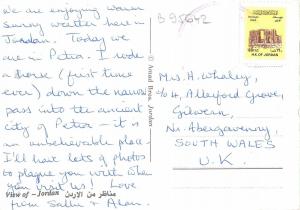 We are enjoying warm
sunny weather here in
Jordan. Today we
are in Petra. I rode
a horse (first time
ever) down the narrow
pass into the ancient
city of Petra - it is
an unbelievable place
I'll have lots of photos
to plague you with when
you visit us! Love
from Sallie & Alan.
View of - Jordan مناظر من الاردن
B 95642
Mrs. H. Whaley,
c/o 4, Allerford Grove,
Gilwern,
Nr. Abergavenny,
SOUTH WALES
U.K.
H.K. OF JORDAN